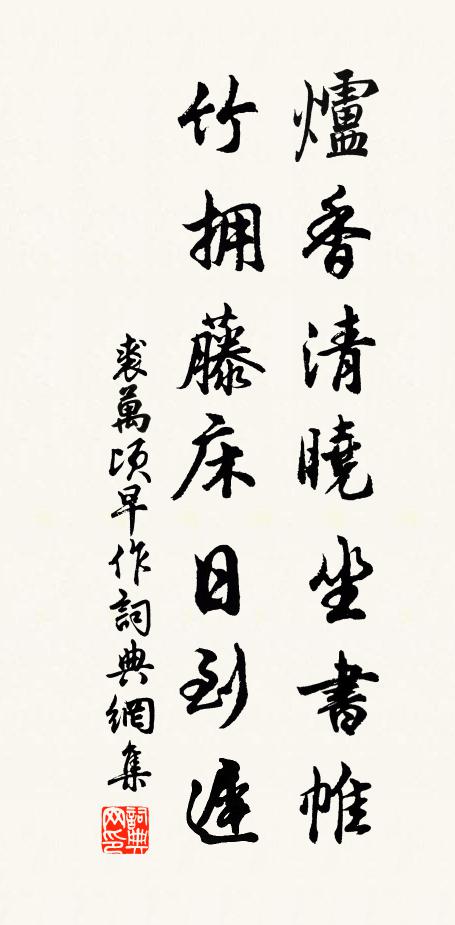 爐香清曉坐書帷
竹拥藤床日到遲
裘萬頃早作詞典網集
詞典網印